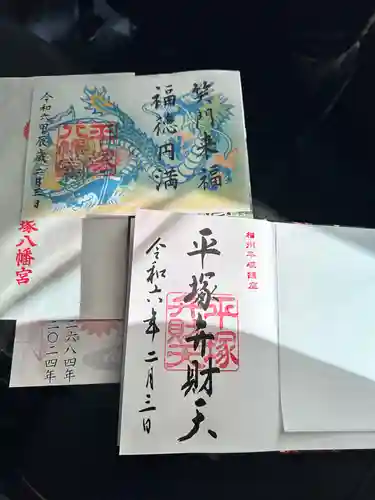 笑門来福
福徳円満
令和六甲辰歳二月三日
平塚
八幡宮
塚八幡宮
二六八四年
二〇二四年
相州平塚鎮座
平塚弁財天
平塚
弁財天
令和六年二月三日